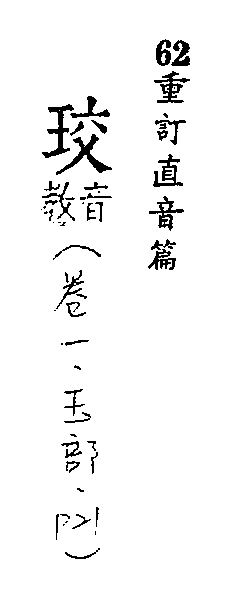 62重訂直音篇
珓
音教
（卷一、玉部、P21）